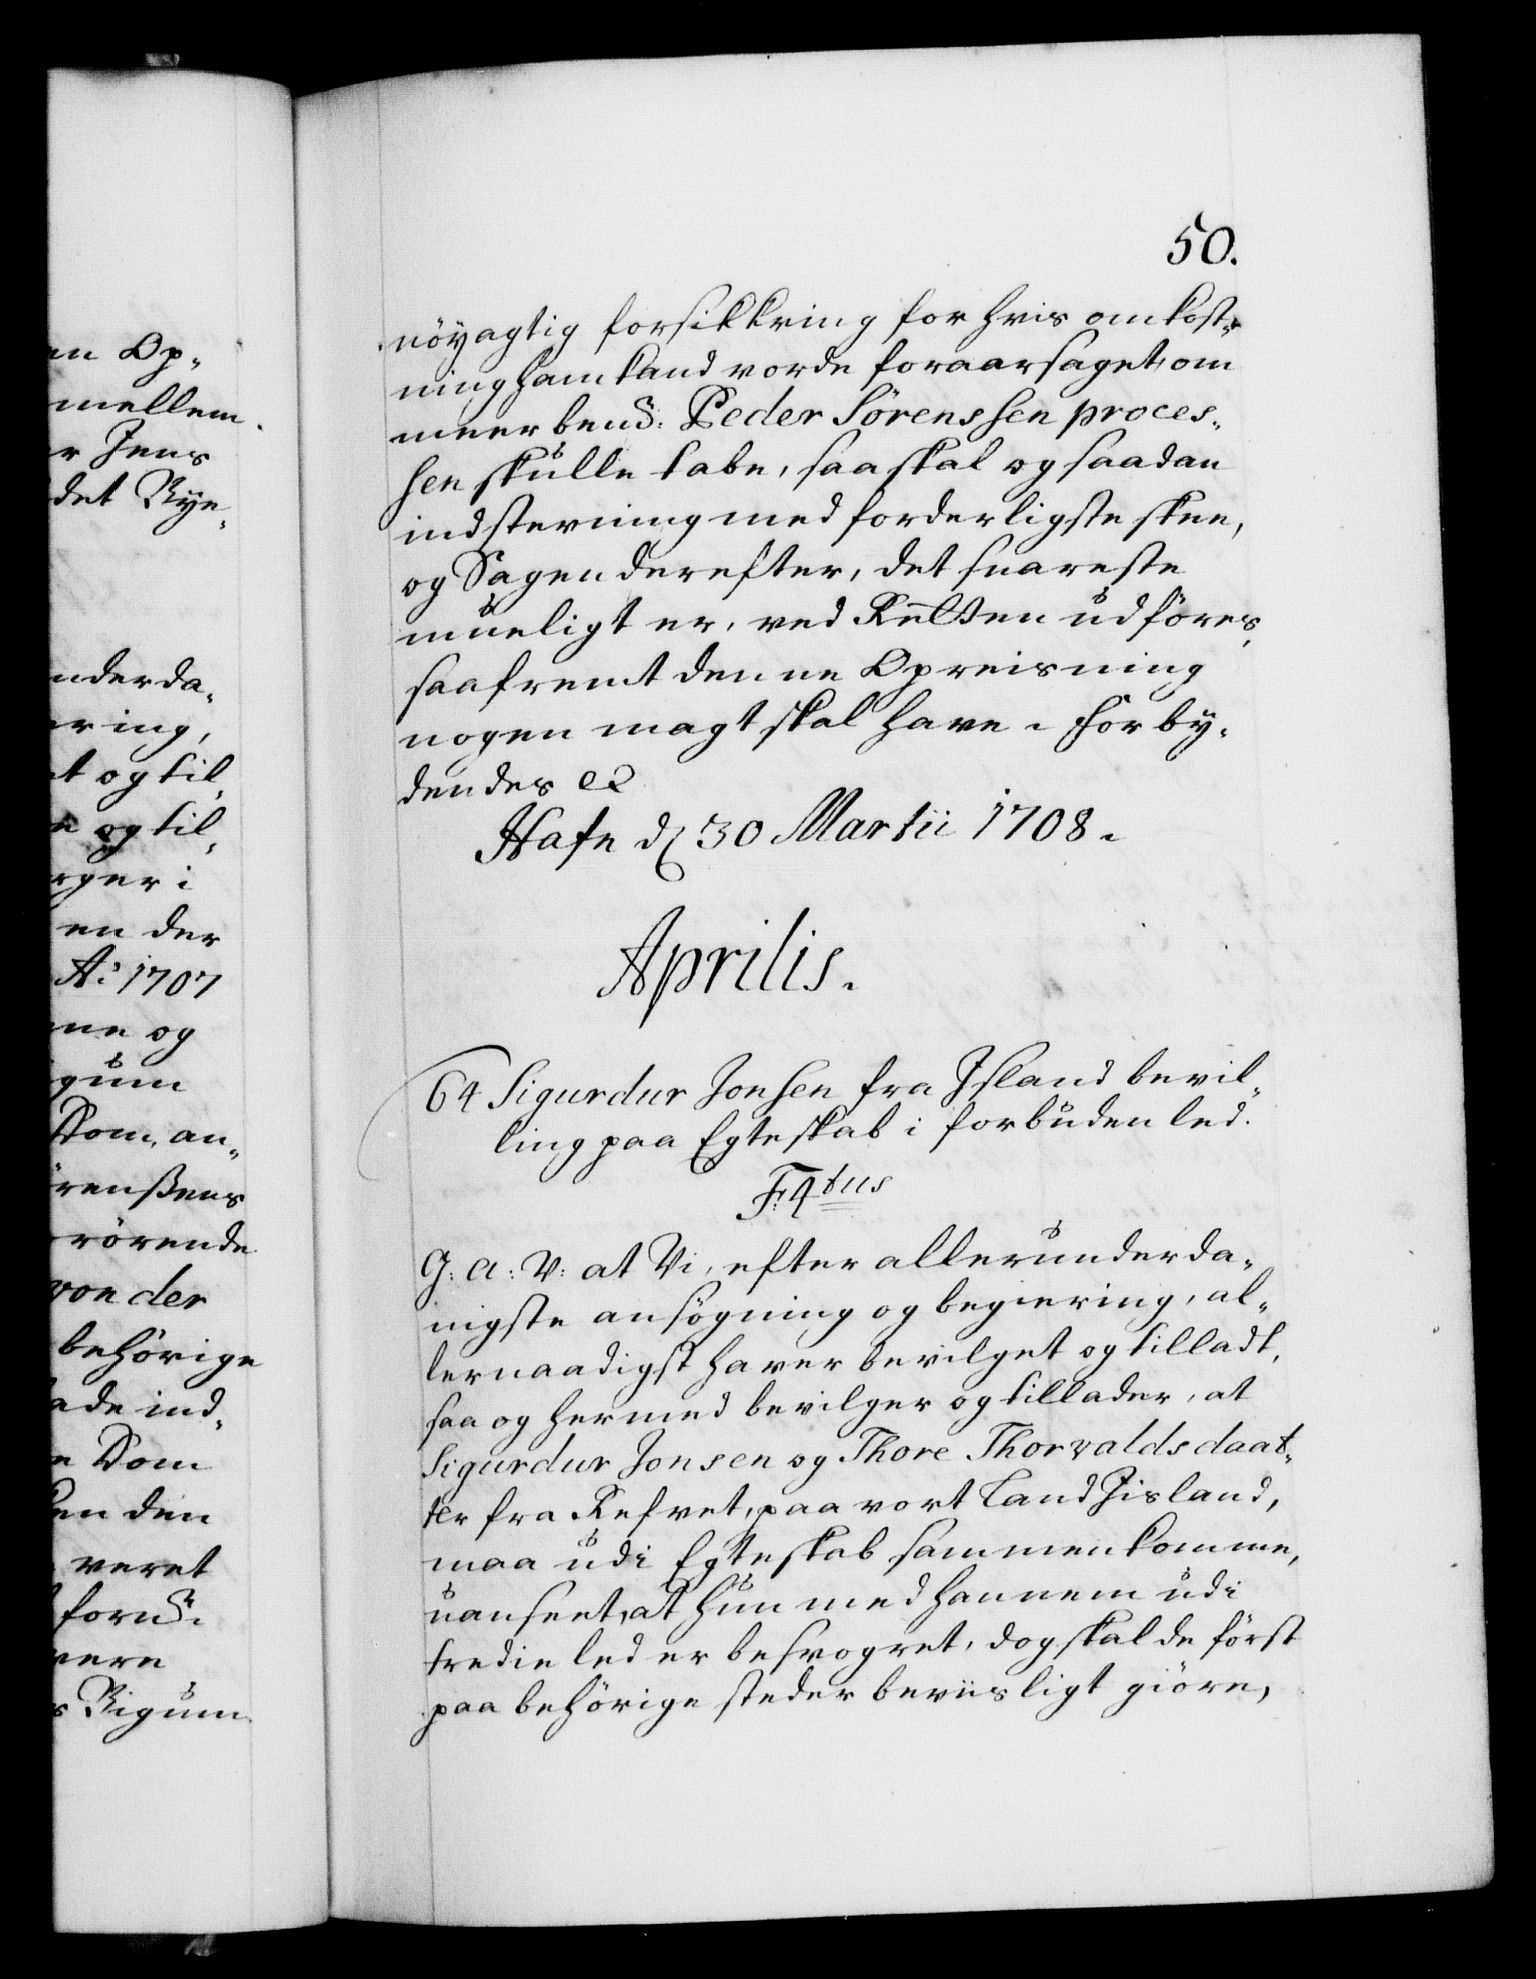 50.
nöyagtig forsikkring for hvis omkost-
ning ham kand vorde foraarsaget, om
meerbend: Peder Sörenssen proces-
sen skulle tabe, saa skal og saadan
indstevning med forderligste skee,
og Sagen derefter, det snareste
mueligt er, ved Retten udföres,
saafremt denne Opreisning
nogen magt skal have. Forby-
dendes ec
Hafn d 30 Martii 1708.
Aprilis.
64 Sigurdur Jonsen fra Jsland bevil-
ling paa Egteskab i forbuden led.
F: 4tus
G: A: V: at Vi, efter allerunderda-
nigste ansögning og begiering, al-
lernaadigst haver bevilget og tilladt,
saa og hermed bevilger og tillader, at
Sigurdur Jonsen og Thore Thorvaldsdaat-
ter fra Refvet, paa vort Land Jisland,
maa udi Egteskab sammenkomme,
uanseet, at hun med hannem udi
tredie led er besvogret, dog skal de först
paa behörige steder beviisligt giöre,
en Op-
mellem
r Jens
det Rye-
nderda-
ering,
et og til-
e og til-
rger i
en der
A:o 1707
ne og
gum
Dom, an-
renßens
rörende
von der
behörige
ade ind-
e Dom
en den
veret
fornd:
vere
s Vigum